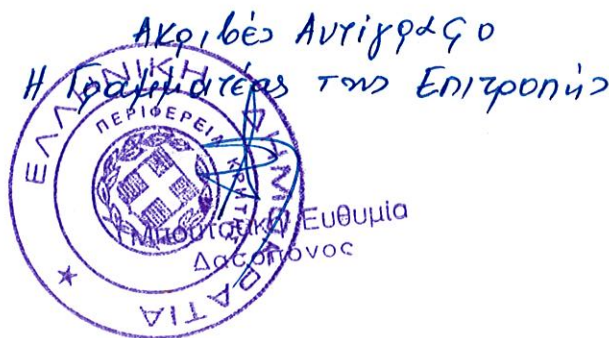 Ακριβές Αντίγραφο
Η Γραμματέας της Επιτροπής
ΕΛΛΗΝΙΚΗ ΔΗΜΟΚΡΑΤΙΑ
ΠΕΡΙΦΕΡΕΙΑ ΚΡΗΤΗΣ
Ευθυμία
Δασοπόνος